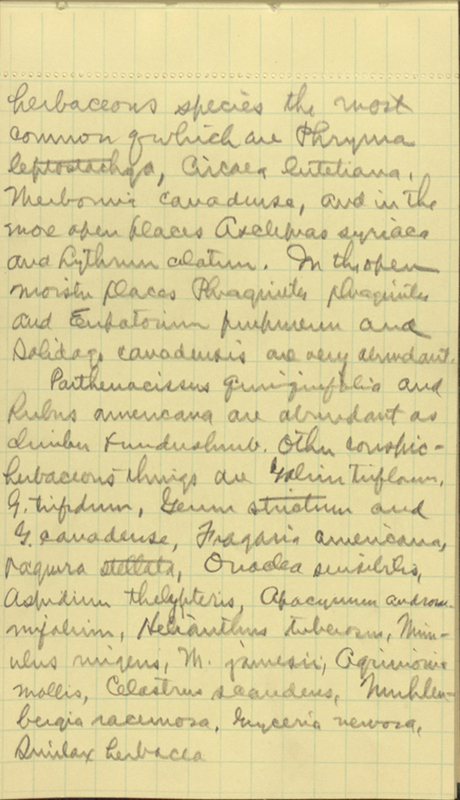 herbaceous species the most
common of which are Phryma
leptostachya, Circaea lutetiana,
Meibomia canadense, and in the
more open places Asclepias syriaca
and Lythrum alatum. In the open
moister places Phragmites phragmites
and Eupatorium purpureum and
Solidago canadensis are very abundant.
Parthenocissus quinquefolia and
Rubus americana are abundant as
climber & undershrub. Other conspic-
herbaceous things are Galium triflorum,
G. trifidum, Geum strictum and
G. canadense, Fragaria americana,
stellata, Onoclea sensibilis,
Aspidium thelypteris, Apocynum androsae-
mifolium, Helianthus tuberosus, Mim-
ulus ringens, M. jamesii, Agrimonia
mollis, Celastrus scandens, Muhlen-
bergia racemosa, Glyceria nervosa,
Smilax herbacea